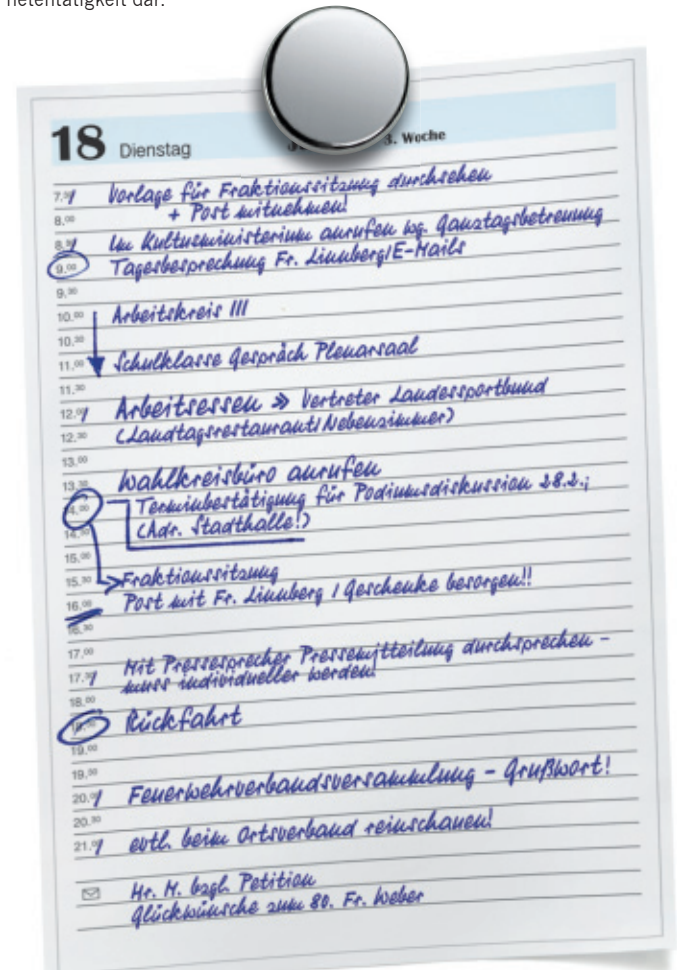 netentätigkeit dar.
18 Dienstag 3. Woche
7.30 Vorlage für Fraktionssitzung durchsehen
8.00 + Post mitnehmen!
8.30 Im Kultusministerium anrufen wg. Ganztagsbetreuung
9.00 Tagesbesprechung Fr. Linnberg/E-Mails
9.30
10.00 Arbeitskreis III
10.30
11.00 Schulklasse Gespräch Plenarsaal
11.30
12.00 Arbeitsessen » Vertreter Landessportbund
12.30 (Landtagsrestaurant/Nebenzimmer)
13.00
13.30 Wahlkreisbüro anrufen
14.00 Terminbestätigung für Podiumsdiskussion 28.2.;
14.30 (Adr. Stadthalle!)
15.00
15.30 Fraktionssitzung
16.00 Post mit Fr. Linnberg / Geschenke besorgen!!
16.30
17.00
17.30 Mit Pressesprecher Pressemitteilung durchsprechen –
muss individueller werden!
18.00
18.30 Rückfahrt
19.00
19.30
20.00 Feuerwehrverbandsversammlung – Grußwort!
20.30
21.00 evtl. beim Ortsverband reinschauen!
Hr. M. bzgl. Petition
Glückwünsche zum 80. Fr. Weber